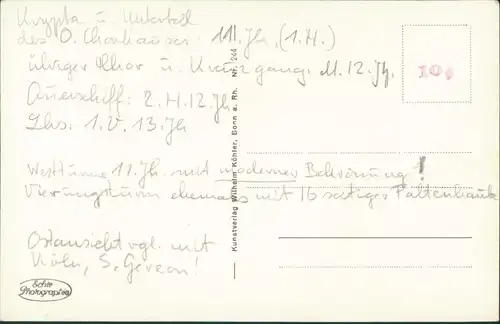 Krypta u. Unterteil
des O. Chorhauses: 11. Jh. (1. H.)
übriger Chor u. Kreuzgang: M. 12. Jh.
Querschiff: 2. H. 12. Jh
Lhs: 1. V. 13. Jh
Westtürme 11. Jh. mit moderner Bekrönung!
Vierungsturm ehemals mit 16 seitiger Faltenhaube
Ostansicht vgl. mit
Köln, S. Gereon!
Echte
Photographie
Kunstverlag Wilhelm Köhler, Bonn a. Rh. Nr. 244